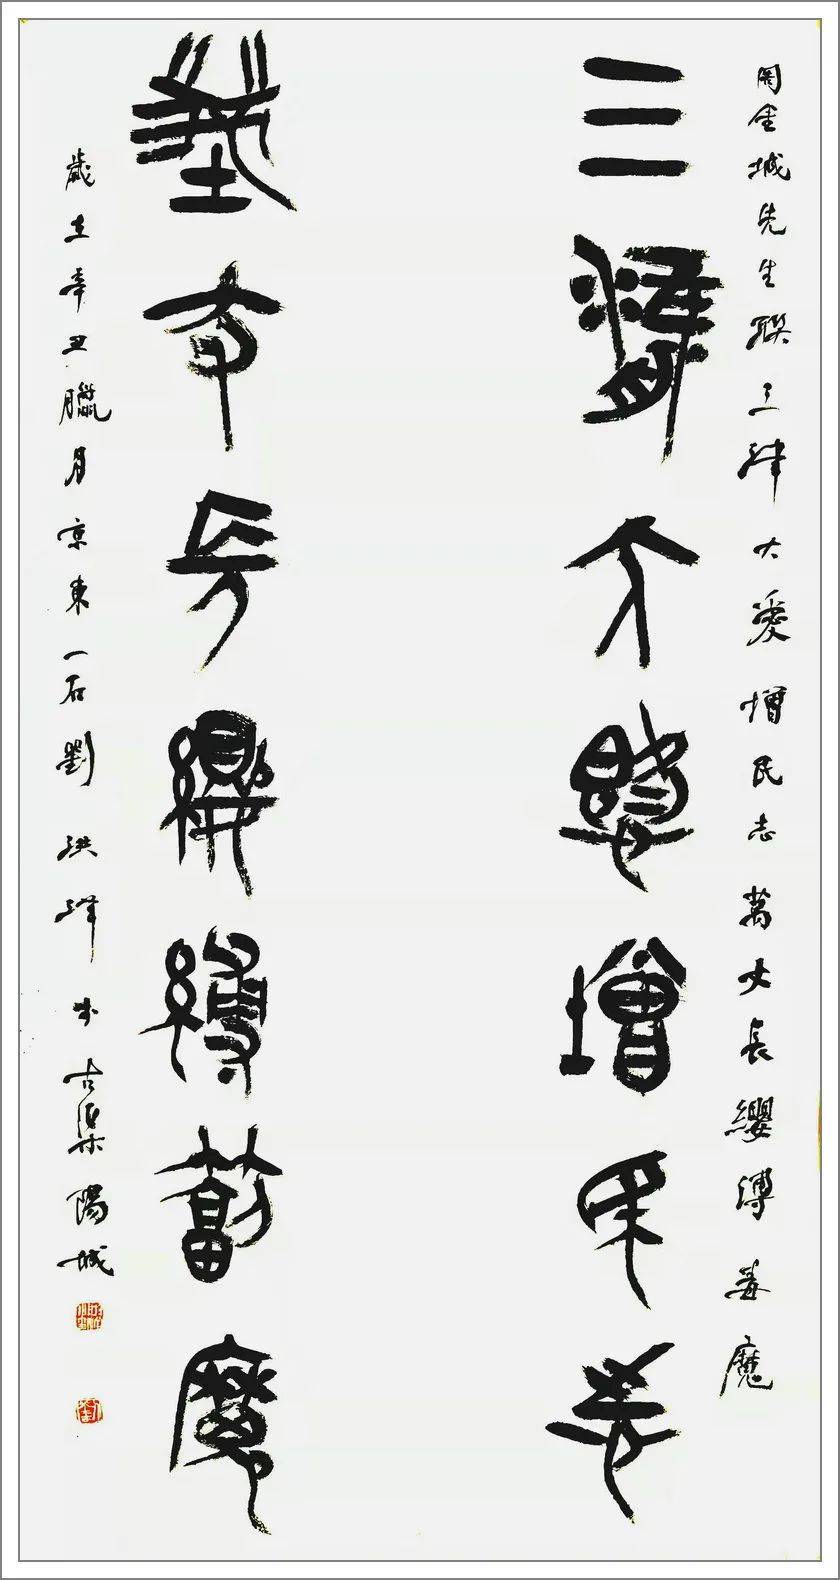 周金城先生聯三津大愛增民志萬丈長纓縛毒魔
三津大愛增民志
萬丈長纓縛毒魔
歲在辛丑臘月京東一石劉洪书古渠陽城